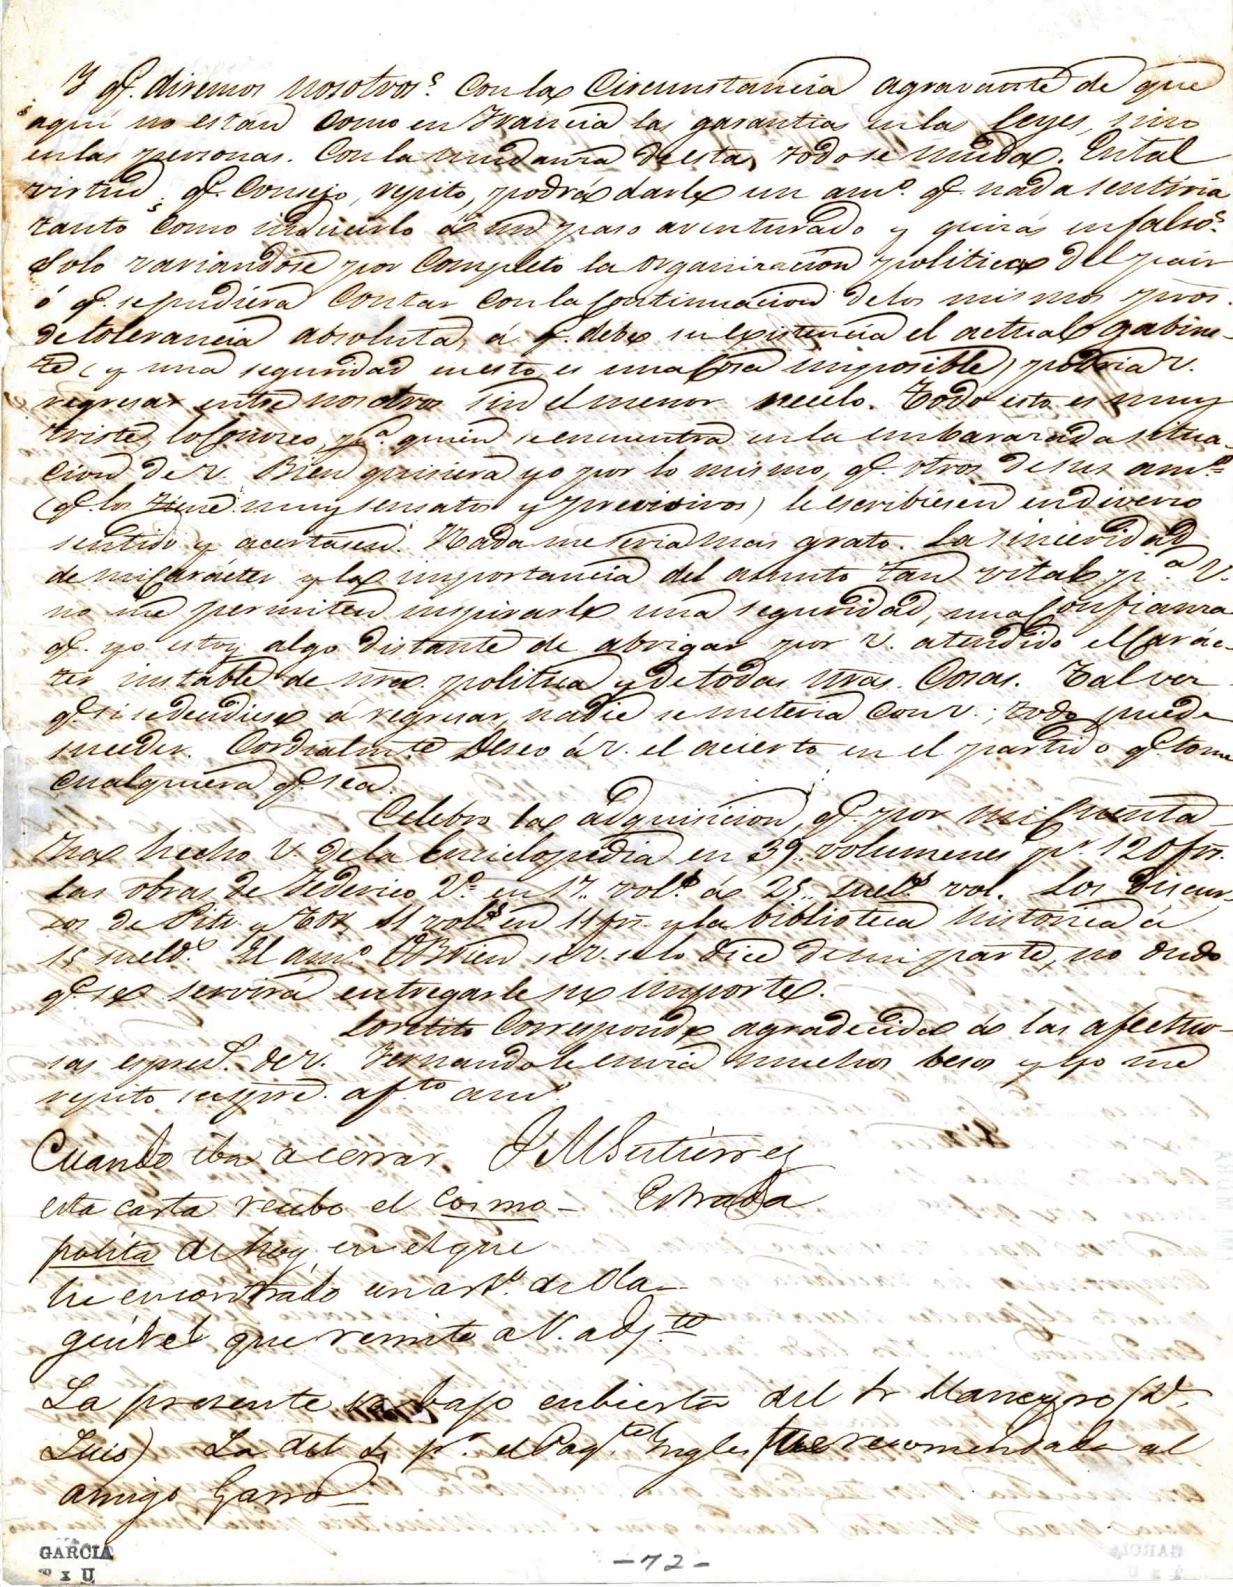 Y qe. diremos nosotros. Con la circunstancia agravante de que
aqui no están como en Francia las garantias en las leyes, sino
en las personas. Con la mudanza de esta, todo se muda. En tal
virtud, qe. consejo, repito, podrá darle un amo. qe. nada sentiria
tanto como inducirlo á un paso aventurado y quizás en falso.
Solo variandose por completo la organizacion politica del pais
ó qe. se pudiera contar con la continuacion de los mismos pros.
de tolerancia absoluta, á qe. debe su existencia el actual gabine-
te (y una seguridad en esto es una cosa imposible) podria V.
regresar entre nosotros sin el menor recelo. Todo esto es muy
triste, lo conozco, pa. quien se encuentra en la embarazada situa-
cion de V. Bien quisiera yo por lo mismo, qe. otros de sus amos.
(qe. los tiene muy sensatos y previsivos) le escribiesen en diverso
sentido y acertasen. Nada me seria mas grato. La sinceridad
de mi carácter y la importancia del asunto tan vital pa. V.
no me permiten inspirarle una seguridad, una confianza
qe. yo estoy algo distante de abrigar por V. atendido el carác-
ter instable de nra. politica y de todas nras. cosas. Tal vez
qe. si se decidiese á regresar, nadie se meteria con V.; todo puede
suceder. Cordialmte. deseo á V. el acierto en el partido qe. tome
cualquiera qe. sea.
Celebro la adquisicion, qe. por mi cuenta
ha hecho V. de la Enciclopedia en 39,, volumenes pr. 120 frs.
Las obras de Federico 2o. en 17,, vols. á 25,, suels. vol. Los discur-
sos de Pitt y Fox 11 vols. en 11 frs. y la biblioteca historica á
15 sueldos. El amo. OBrien si V. se lo dice de mi parte, no dudo
qe. se servirá entregarle su importe.
Loretito corresponde agradecida á las afectuo-
sas espres. de V. Fernando le envia muchos besos y yo me
repito siempre. afto. amo.
Cuando iba a cerrar J M Gutierrez
esta carta recibo el Cosmo- Estrada
polita de hoy, en el que
he encontrado un arto. de Ola-
guibel que remito a V. adjto.
La presente va bajo cubierta del Sr Maneyro (Dn.
Luis) La del pa. el Paqte. Ingles fue recomendada al
amigo Garro
GARCIA
-72-